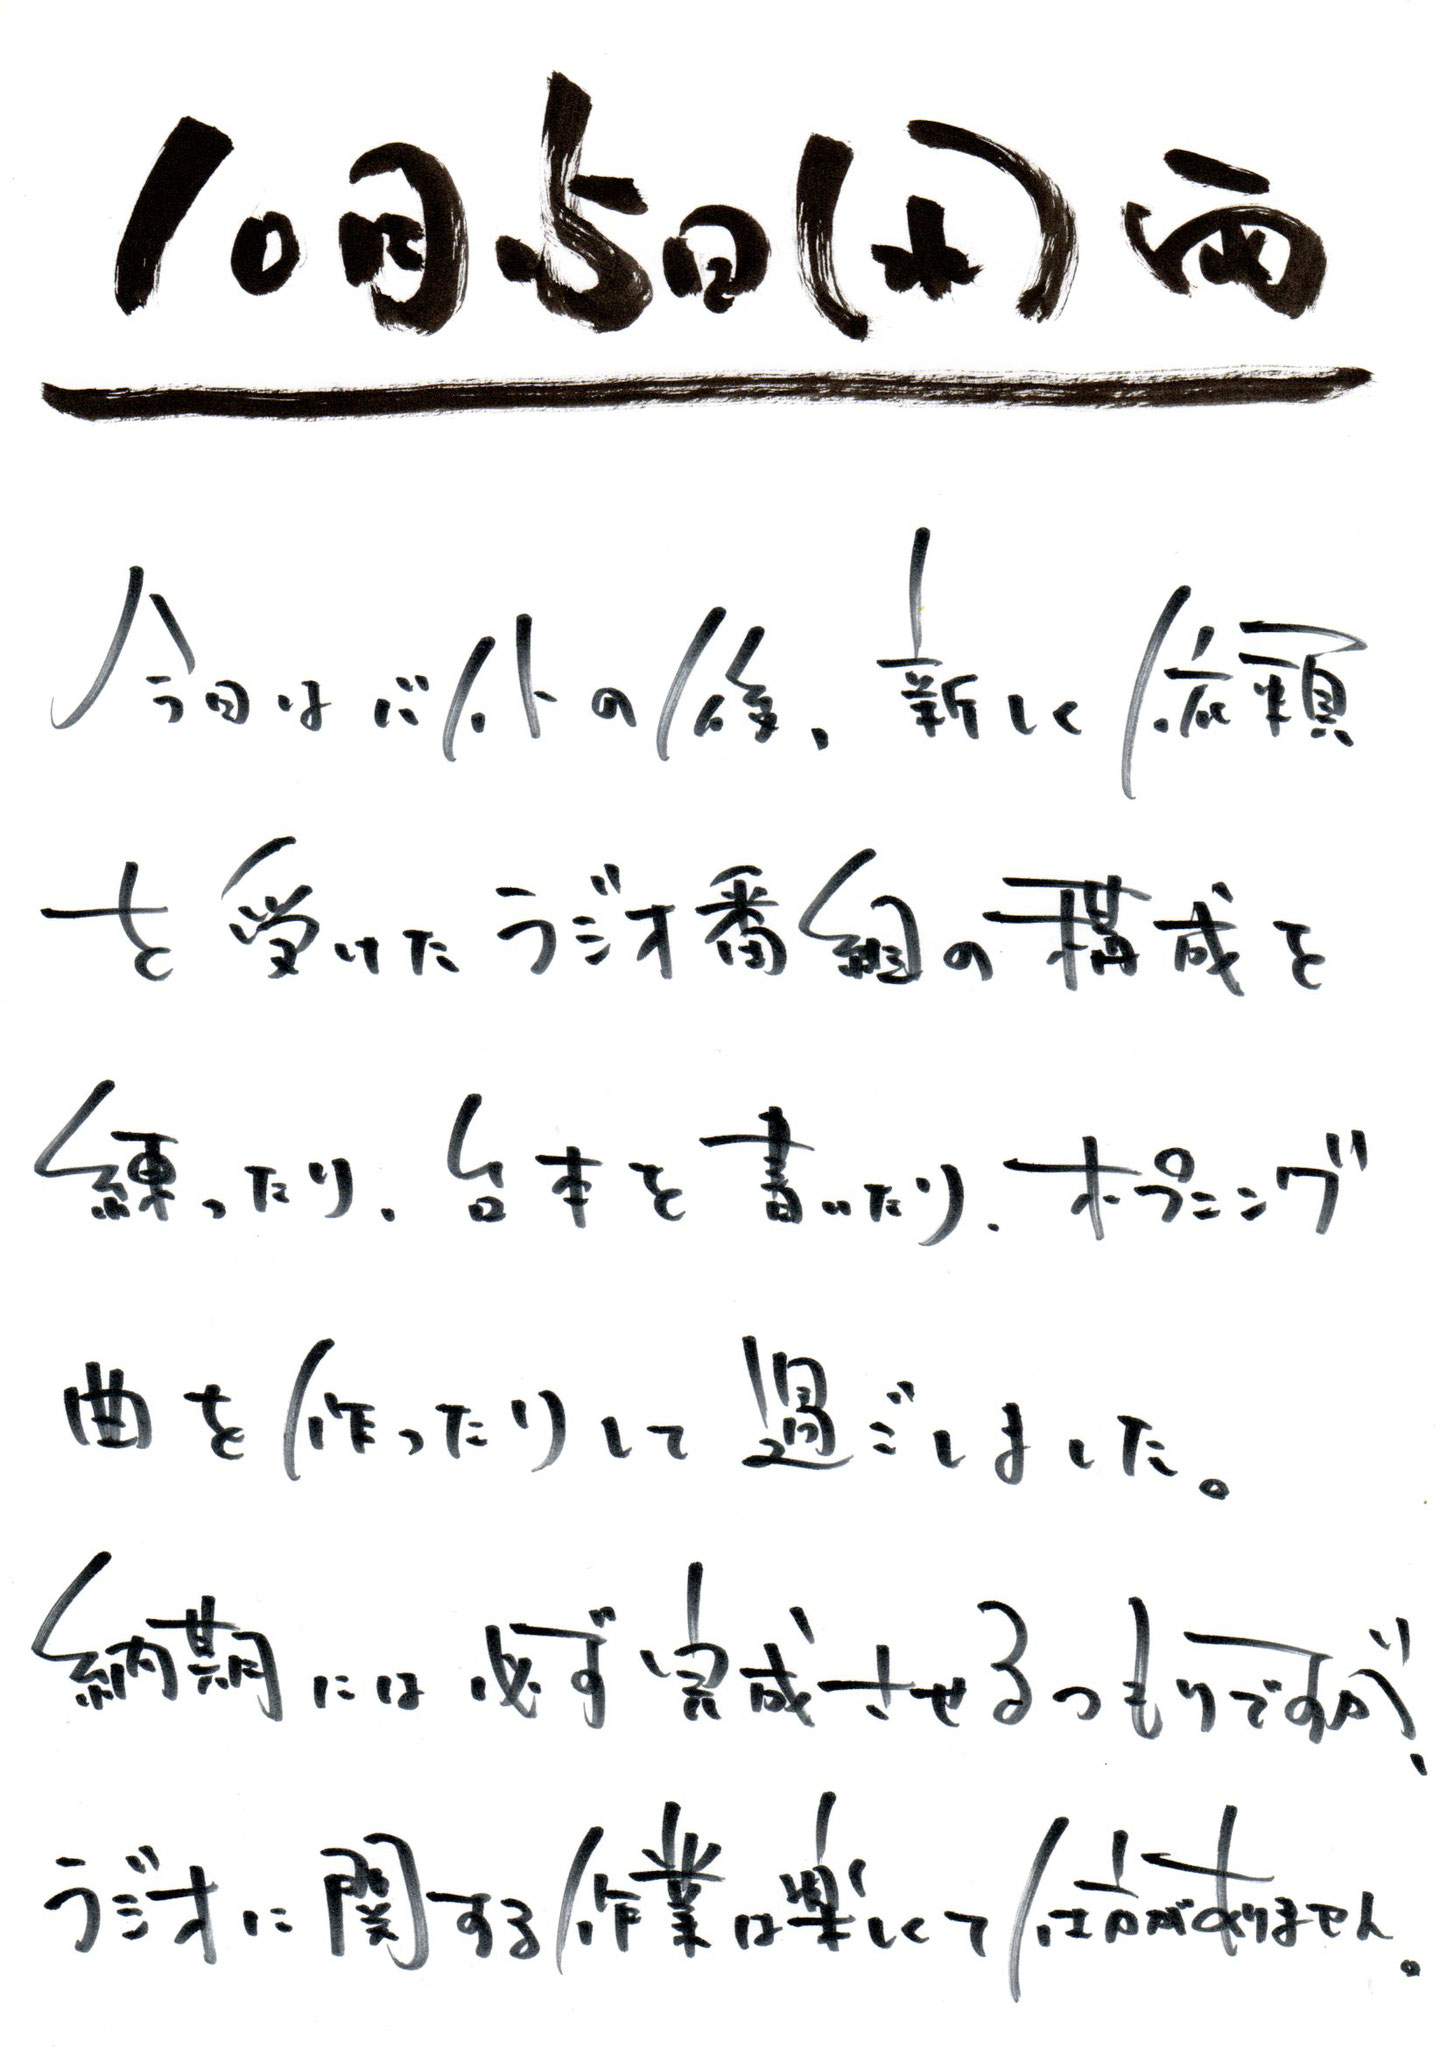 10月5日(水)雨
今日はバイトの後、新しく依頼
を受けたラジオ番組の構成を
練ったり、台本を書いたり、オープニング
曲を作ったりして過ごしました。
納期には必ず完成させるつもりですが、
ラジオに関する作業は楽しくて仕方がありません。